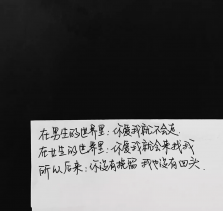 在男生的世界里：你爱我就不会走
在女生的世界里：你爱我就会来找我
所以后来：你没有挽留 我也没有回头